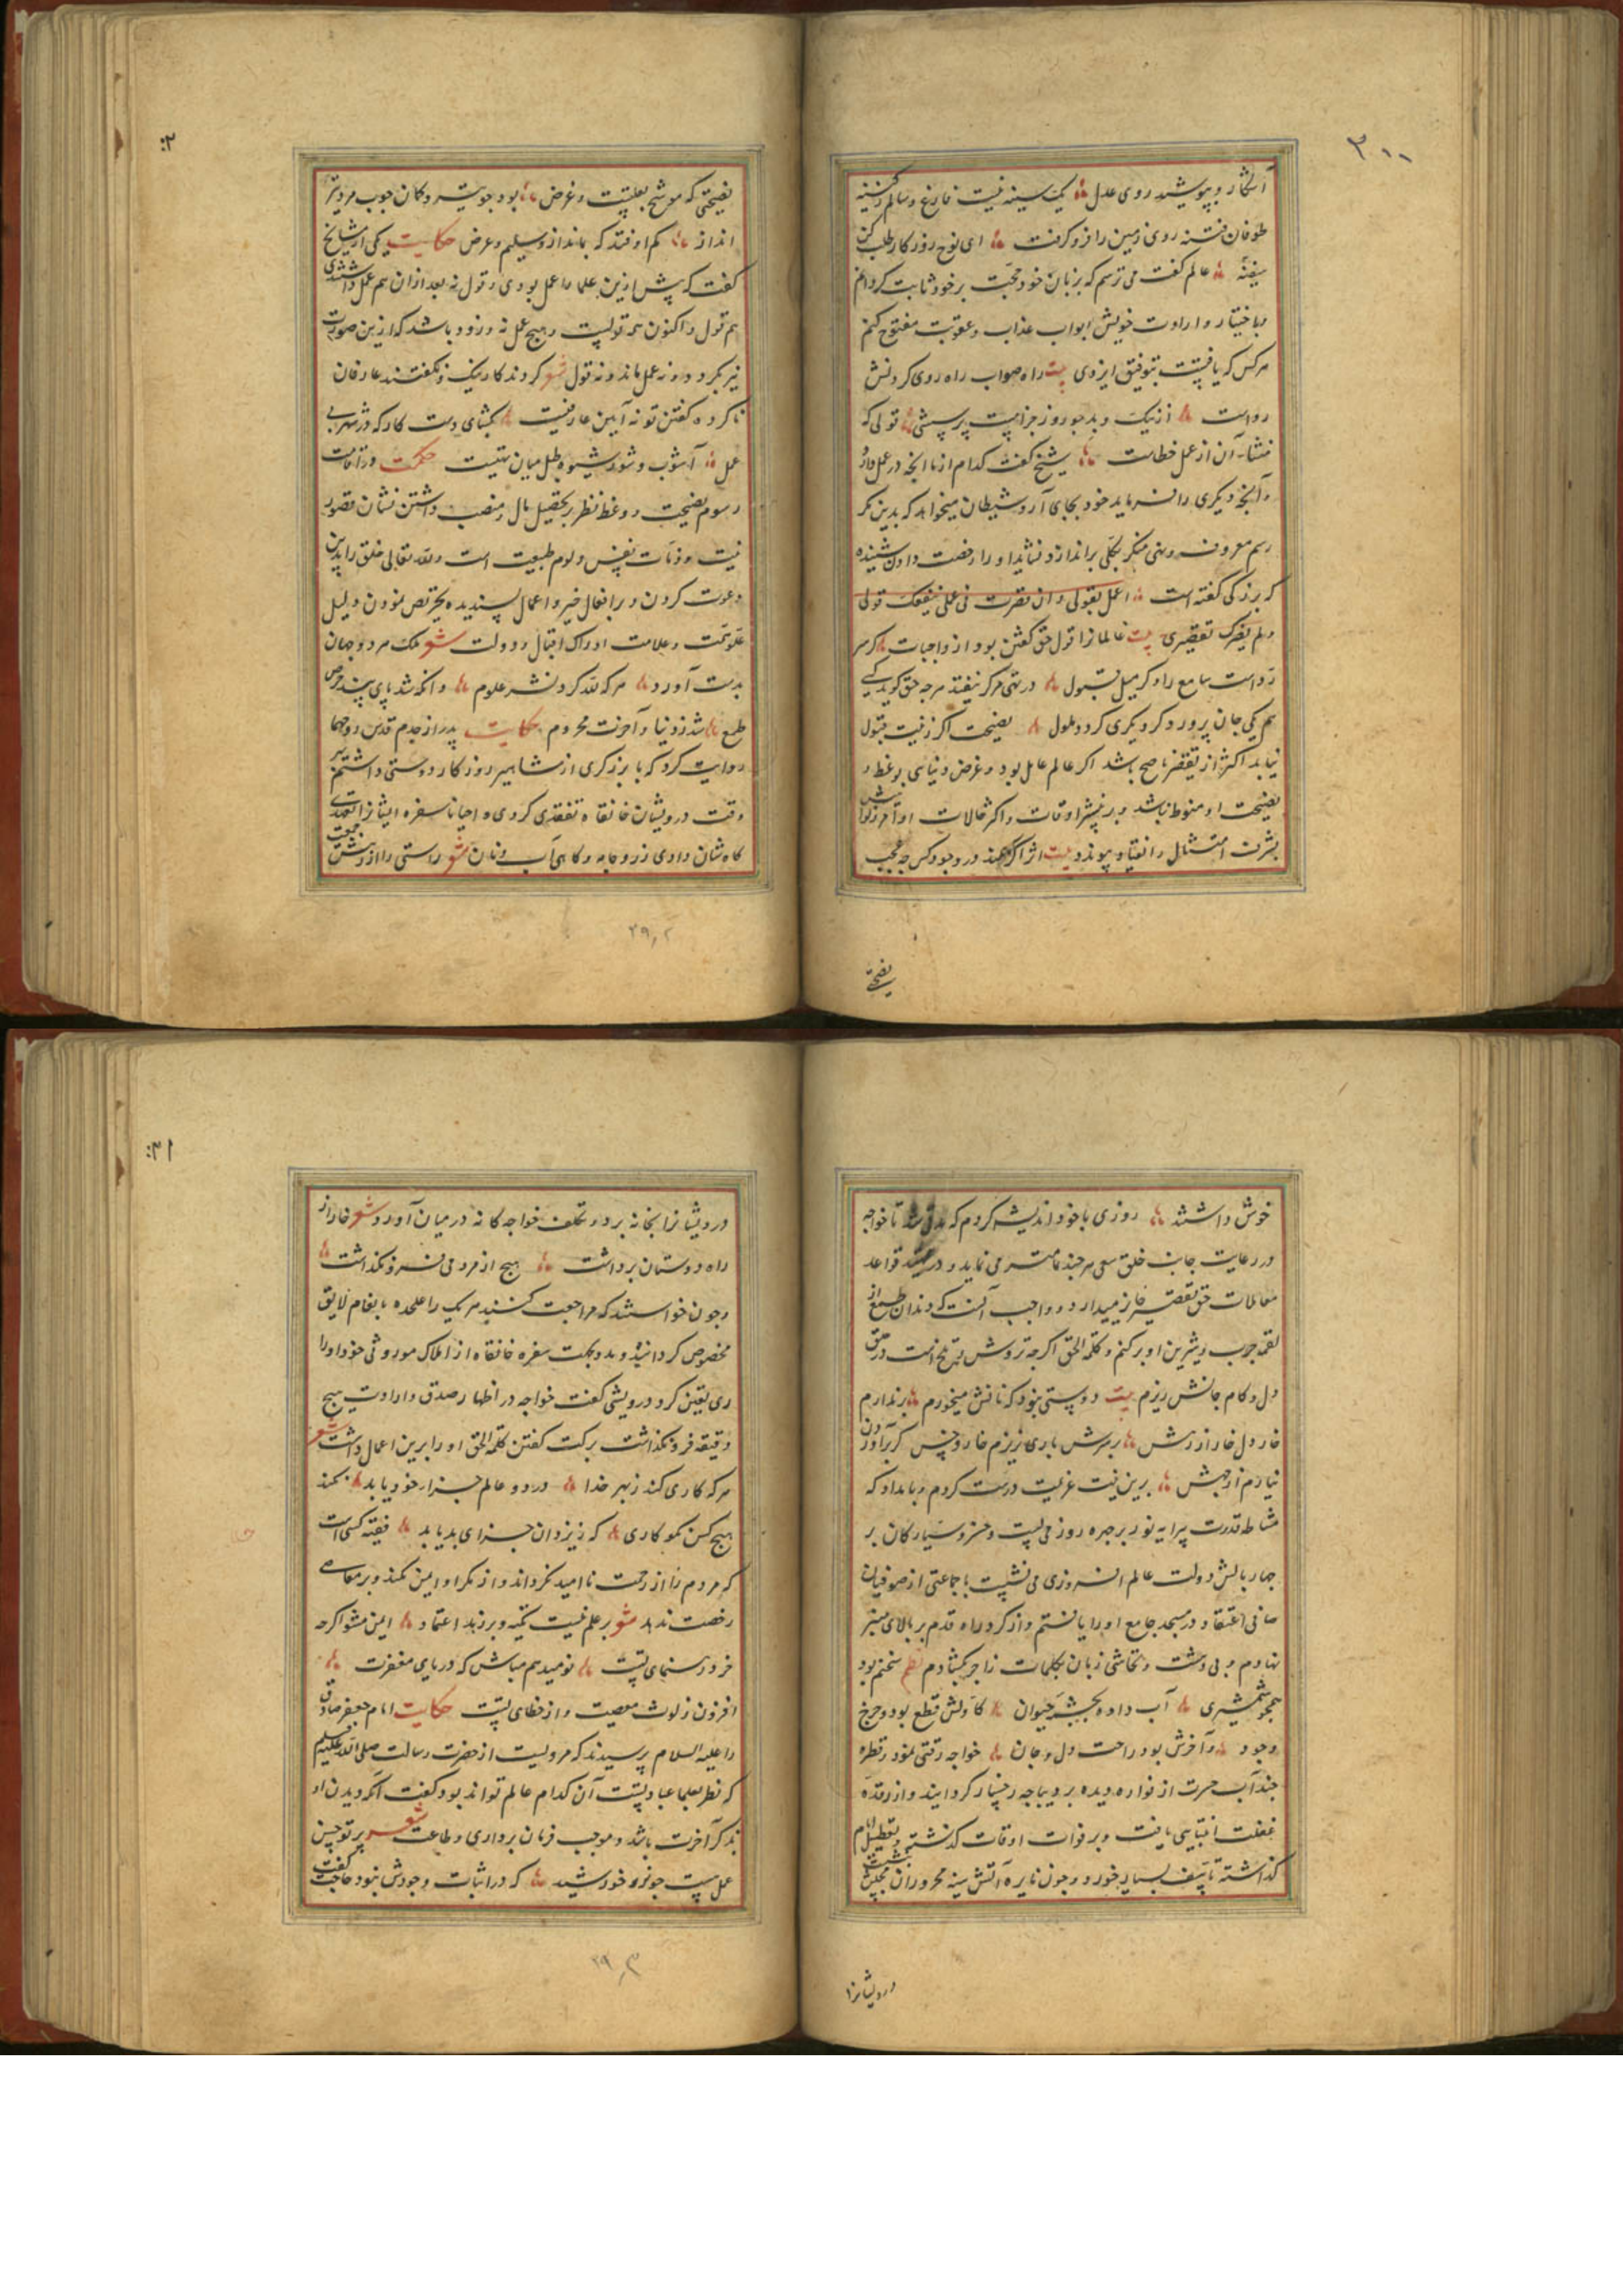 ۲۰۰
آشکار و بپوشید روی عدل یک سینه نیست فارغ و سالم ز کینه
طوفان فتنه روی زمین را فرو گرفت ای نوح روزکار طلب کن
سفینه عالم گفت می ترسم که بزبان خود حجت برخود ثابت کردانم
و باختیار و ارادت خویش ابواب عذاب و عقوبت مفتوح کنم
هرکس که یافتست بتوفیق ایزدی بیت راه صواب راه روی کردنش
رواست از نیک و بد چو روز جزا هست پرسشی قولی که
منشأ آن از عمل خطاست شیخ گفت کدام از ما انچه در عمل دارد
و آنچه دیکری را فرماید خود بجای آرد شیطان میخواهد که بدین مکر
رسم معروف و نهی منکر بکلی براندازد نشاید او را رخصت دادن شنیده
که بزرکی گفته است اعمل بقولی و ان قصرت فی عملی ینفعک قولی
ولم یضرک تقصیری بیت عالمانرا قول حق گفتن بود از واجبات کر
رواست سامع را و کر میل قبول در تهی هرکز نیفتد هرچه حق کوید کسی
هم یکی جان پرورد کر دیکری کردد ملول نصیحت اکر زینت قبول
نیابد اکثر از تقصیر ناصح باشد اکر عالم عامل بود و غرض دنیایی بوعظ و
نصیحت او منوط نباشد و بر بیشتر اوقات و اکثر حالات اوامرش
بشرف امتثال و انقیاد پیوندد بیت اثر اکر نکند در وجود کس چه عجب
نصیحتی
۲۰:
نصیحتی که موشح بعلتست و غرض بود چو تیر و کمان چوب مرد تیر
انداز کم اوفتد که بماند از سلیم و عرض حکایت یکی از مشایخ
گفت که پیش ازین علما را عمل بودی و قول نه بعد از ان هم عمل داشتندی
هم قول و اکنون همه قولیست و هیچ عمل نه و زود باشد که ازین صورت
نیز بکردد و نه عمل ماند و نه قول شعر کردند کار نیک و نکفتند عارفان
ناکرده گفتن تو نه آیین عارفیست بکشای دست کار که در شهر بی
عمل آشوب و شور شیوه طبل میان تهیست حکمت در اقامت
رسوم نصیحت و وعظ نظر بتحصیل مال و منصب داشتن نشان قصور
نیت و دنائت نفس و لوم طبیعت است و لله تعالی خلق را بدین
دعوت کردن و بر افعال خیر و اعمال پسندیده تحریض نمودن دلیل
علو همت و علامت ادراک اقبال و دولت شعر ملک هر دو جهان
بدست آورد هرکه لله کرد نشر علوم وانکه شد پای بند حرص
طمع شد ز دنیا و آخرت محروم حکایت پدر از جدم قدس روحهما
روایت کرد که با بزرکی از مشاهیر روزکار دوستی داشتم
وقت درویشان خانقاه تفقدی کردی و احیانا سفره ایشانرا تعهدی
کاه شان دادی زر و جامه و کاهی آب و نان شعر راستی را از درویشان
۲۹٫۲
خوش داشتند روزی با خود اندیشه کردم که مدتی شد تا خواجه
در رعایت جانب خلق سعی هرچند تمامتر می نماید و در قواعد
معاملات حق تقصیر جایز میدارد و واجب آنست که دندان طمع از
لقمه چرب و شیرین او برکنم و کلمة الحق اکرچه ترش و تلخ است در حق
دل و کام جانش ریزم بیت دوستی نبود که نانش میخورم برندارم
خار دل خار از رهش بر سرش باری نریزم خار و خس کر برآوردن
نیارم از چهش برین نیت عزیمت درست کردم و بامداد که
مشاطه قدرت پیرایه نور بر چهره روز می بست و خسرو سیارکان بر
چهار بالش دولت عالم افروزی می نشست با جماعتی از صوفیان
صافی اعتقاد در مسجد جامع او را یافتم و از کرد راه قدم بر بالای منبر
نهادم و بی دهشت و تحاشی زبان بکلمات زاجر بکشادم نظم سخنم بود
همچو شمشیری آب داده بچشمه حیوان کاولش قطع بود و جرح
وجود وآخرش بود راحت دل و جان خواجه رقتی نمود و قطره
چند آب حسرت از فواره دیده بر دیباچه رخسار کردانید و از رقده
غفلت انتباهی یافت و بر فوات اوقات گذشته و تعطیل ایام
گذاشته تأسف بسیار خورد و چون نایره آتش سینه محروران بنشست
درویشانرا
۲۱:
درویشانرا بخانه برد و تکلف خواجه کانه در میان آورد شعر خار از
راه دوستان برداشت هیچ از مردمی فرو نکذاشت
و چون خواستند که مراجعت کنند هر یک را علیحده بانعام لایق
مخصوص کردانید و مدد بجهت سفره خانقاه از املاک موروثی خود اورا
ری یقین کرد درویشی کفت خواجه در اظهار صدق و ارادت هیچ
دقیقه فرو نکذاشت برکت کفتن کلمة الحق او را برین اعمال داشت شعر
هرکه کاری کند ز بهر خدا در دو عالم جزاء خود یابد نکند
هیچ کس نکو کاری که ز یزدان جزای بد یابد فقیه کسی است
که مردم را از رحمت ناامید نکرداند و از مکر او ایمن نکند و بر معاصی
رخصت ندهد شعر بر علم نیست تکیه و بر زهد اعتماد ایمن مشو اکرچه
خرد رهنمای تست نومید هم مباش که دریای مغفرت
افزون ز لوث معصیت و از خطای تست حکایت امام جعفر صادق
را علیه السلام پرسیدند که مرویست از حضرت رسالت صلی الله علیه وسلم
که نظر بعلما عبادتست آن کدام عالم تواند بود کفت آنکه دیدن او
مذکر آخرت باشد و موجب فرمان برداری و طاعت شعر پرتو حسن
عمل هست چو نور خورشید که در اثبات وجودش نبود حاجت گفت
۲۹٫۳